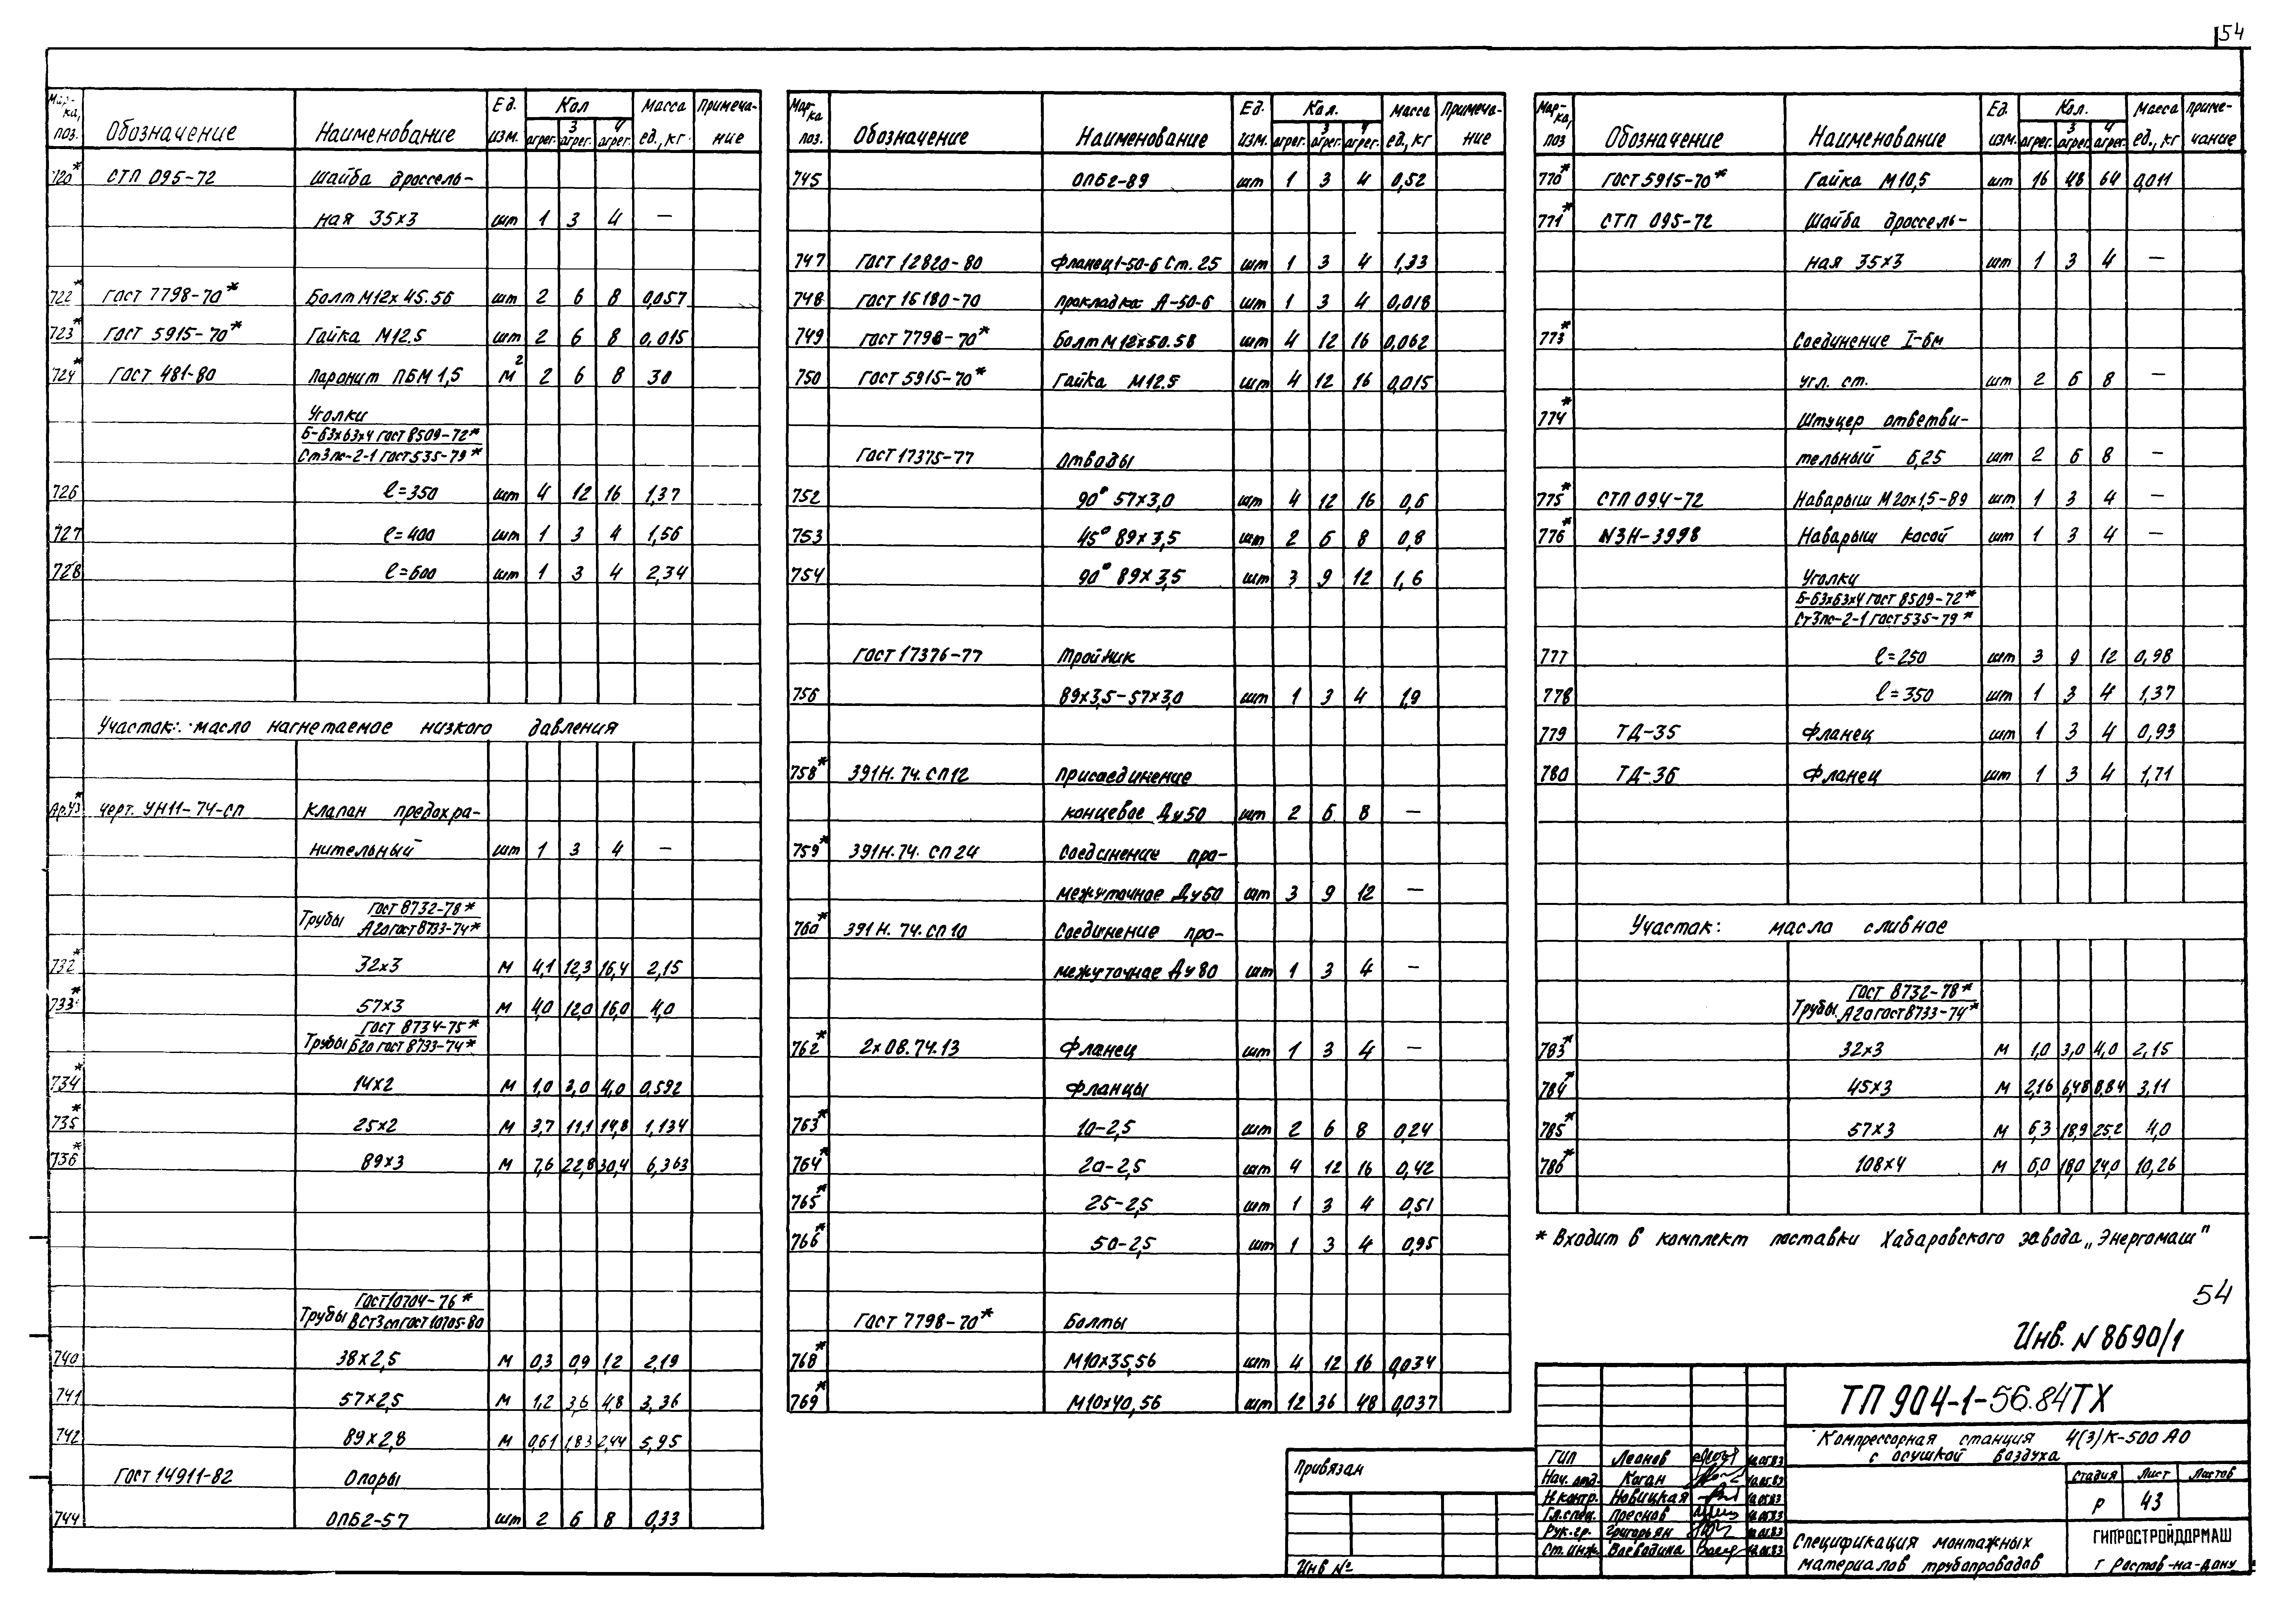 54
Мар-ка, поз. Обозначение Наименование Ед. изм. Кол Масса ед., кг Примеча-ние
агрег. 3 агрег. 4 агрег.
720* СТП 095-72 Шайба дроссель-
ная 35х3 шт 1 3 4 —
722* ГОСТ 7798-70* Болт М12х45.56 шт 2 6 8 0,057
723* ГОСТ 5915-70* Гайка М12.5 шт 2 6 8 0,015
724* ГОСТ 481-80 Паронит ПБМ 1,5 м² 2 6 8 30
Уголки
Б-63х63х4 ГОСТ 8509-72*
Ст3пс-2-1 ГОСТ 535-79*
726 ℓ=350 шт 4 12 16 1,37
727 ℓ=400 шт 1 3 4 1,56
728 ℓ=600 шт 1 3 4 2,34
Участок: масло нагнетаемое низкого давления
Ар.43* черт. УН11-74-СП Клапан предохра-
нительный шт 1 3 4 —
Трубы ГОСТ 8732-78*
А20 ГОСТ 8733-74*
732* 32х3 м 4,1 12,3 16,4 2,15
733* 57х3 м 4,0 12,0 16,0 4,0
Трубы ГОСТ 8734-75*
Б20 ГОСТ 8733-74*
734* 14х2 м 1,0 3,0 4,0 0,592
735* 25х2 м 3,7 11,1 14,8 1,134
736* 89х3 м 7,6 22,8 30,4 6,363
Трубы ГОСТ 10704-76*
ВСт3сп ГОСТ 10705-80
740 38х2,5 м 0,3 0,9 1,2 2,19
741 57х2,5 м 1,2 3,6 4,8 3,36
742 89х2,8 м 0,61 1,83 2,44 5,95
ГОСТ 14911-82 Опоры
744 ОПБ2-57 шт 2 6 8 0,33
Мар-ка поз. Обозначение Наименование Ед. изм. Кол. Масса ед., кг Примеча-ние
агрег. 3 агрег. 4 агрег.
745 ОПБ2-89 шт 1 3 4 0,52
747 ГОСТ 12820-80 Фланец 1-50-6 Ст. 25 шт 1 3 4 1,33
748 ГОСТ 15180-70 Прокладка А-50-6 шт 1 3 4 0,018
749 ГОСТ 7798-70* Болт М12х50.58 шт 4 12 16 0,062
750 ГОСТ 5915-70* Гайка М12.5 шт 4 12 16 0,015
ГОСТ 17375-77 Отводы
752 90° 57х3,0 шт 4 12 16 0,6
753 45° 89х3,5 шт 2 6 8 0,8
754 90° 89х3,5 шт 3 9 12 1,6
ГОСТ 17376-77 Тройник
756 89х3,5-57х3,0 шт 1 3 4 1,9
758* 391Н.74.СП12 Присоединение
концевое Ду50 шт 2 6 8 —
759* 391Н.74.СП24 Соединение про-
межуточное Ду50 шт 3 9 12 —
760* 391Н.74.СП10 Соединение про-
межуточное Ду80 шт 1 3 4 —
762* 2х08.74.13 Фланец шт 1 3 4 —
Фланцы
763* 10-2,5 шт 2 6 8 0,24
764* 20-2,5 шт 4 12 16 0,42
765* 25-2,5 шт 1 3 4 0,51
766* 50-2,5 шт 1 3 4 0,95
ГОСТ 7798-70* Болты
768* М10х35,56 шт 4 12 16 0,034
769* М10х40,56 шт 12 36 48 0,037
Мар-ка, поз Обозначение Наименование Ед. изм. Кол. Масса ед., кг Приме-чание
агрег. 3 агрег. 4 агрег.
770* ГОСТ 5915-70* Гайка М10,5 шт 16 48 64 0,011
771* СТП 095-72 Шайба дроссель-
ная 35х3 шт 1 3 4 —
773* Соединение I-6м
угл. ст. шт 2 6 8 —
774* Штуцер ответви-
тельный 6,25 шт 2 6 8 —
775* СТП 094-72 Наварыш М20х1,5-89 шт 1 3 4 —
776* N3Н-3998 Наварыш косой шт 1 3 4 —
Уголки
Б-63х63х4 ГОСТ 8509-72*
Ст3пс-2-1 ГОСТ 535-79*
777 ℓ=250 шт 3 9 12 0,98
778 ℓ=350 шт 1 3 4 1,37
779 ТД-35 Фланец шт 1 3 4 0,93
780 ТД-36 Фланец шт 1 3 4 1,71
Участок: масло сливное
Трубы ГОСТ 8732-78*
А20 ГОСТ 8733-74*
783* 32х3 м 1,0 3,0 4,0 2,15
784* 45х3 м 2,16 6,48 8,84 3,11
785* 57х3 м 6,3 18,9 25,2 4,0
786* 108х4 м 6,0 18,0 24,0 10,26
* Входит в комплект поставки Хабаровского завода „Энергомаш"
54
Инв. N 8690/1
ТП 904-1-56.84ТХ
Компрессорная станция 4(3)К-500 АО
с осушкой воздуха
Стадия Лист Листов
Р 43
Спецификация монтажных
материалов трубопроводов
ГИПРОСТРОЙДОРМАШ
г Ростов-на-Дону
ГИП Леонов 12.05.83
Нач. отд. Коган 12.05.83
Н.контр. Новицкая 12.05.83
Гл.спец. Преснов 12.05.83
Рук.гр. Григорьян 12.05.83
Ст.инж. Воеводина 12.05.83
Привязан
Инв №